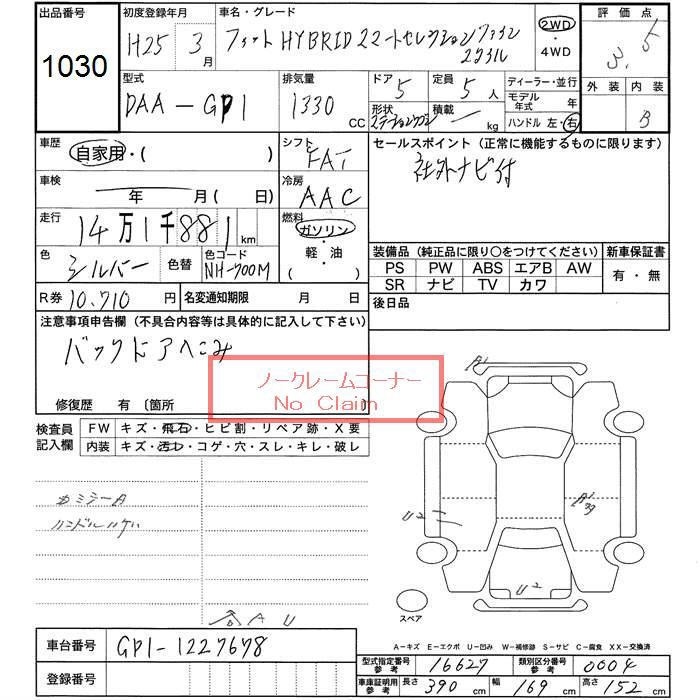 出品番号 初度登録年月 車名・グレード 評価点
1030 H25 3月 フィット HYBRID スマートセレクション ファイン 2WD ・4WD 3.5
型式 排気量 ドア 定員 ディーラー・並行 外装 内装
DAA-GP1 1330 CC 5 5人 モデル年式 年 B
形状 積載 kg ハンドル 左・右
車歴 自家用・( ) シフト FAT セールスポイント (正常に機能するものに限ります)
車検 年 月 ( 日) 冷房 AAC 社外ナビ付
走行 14万1千881km 燃料 ガソリン 軽・油 ( )
色 シルバー 色替 色コード NH-700M
装備品 (純正品に限り○をつけてください) 新車保証書
PS PW ABS エアB AW 有・無
SR ナビ TV カワ
R券 10,710円 名変通知期限 月 日 後日品
注意事項申告欄 (不具合内容等は具体的に記入して下さい)
バックドアへこみ
ノークレームコーナー
No Claim
修復歴 有 〔箇所 〕
検査員記入欄 FW キズ・飛石・ヒビ割・リペア跡・X要
内装 キズ・汚レ・コゲ・穴・スレ・キレ・破レ
ハンドルハゲ
A U
A1
U2
U2
スペア
A-キズ E-エクボ U-凹み W-補修跡 S-サビ C-腐食 XX-交換済
車台番号 GP1-1227678
登録番号
型式指定番号 参考 16627 類別区分番号 参考 0004
車庫証明用 参考 長さ 390 cm 幅 169 cm 高さ 152 cm